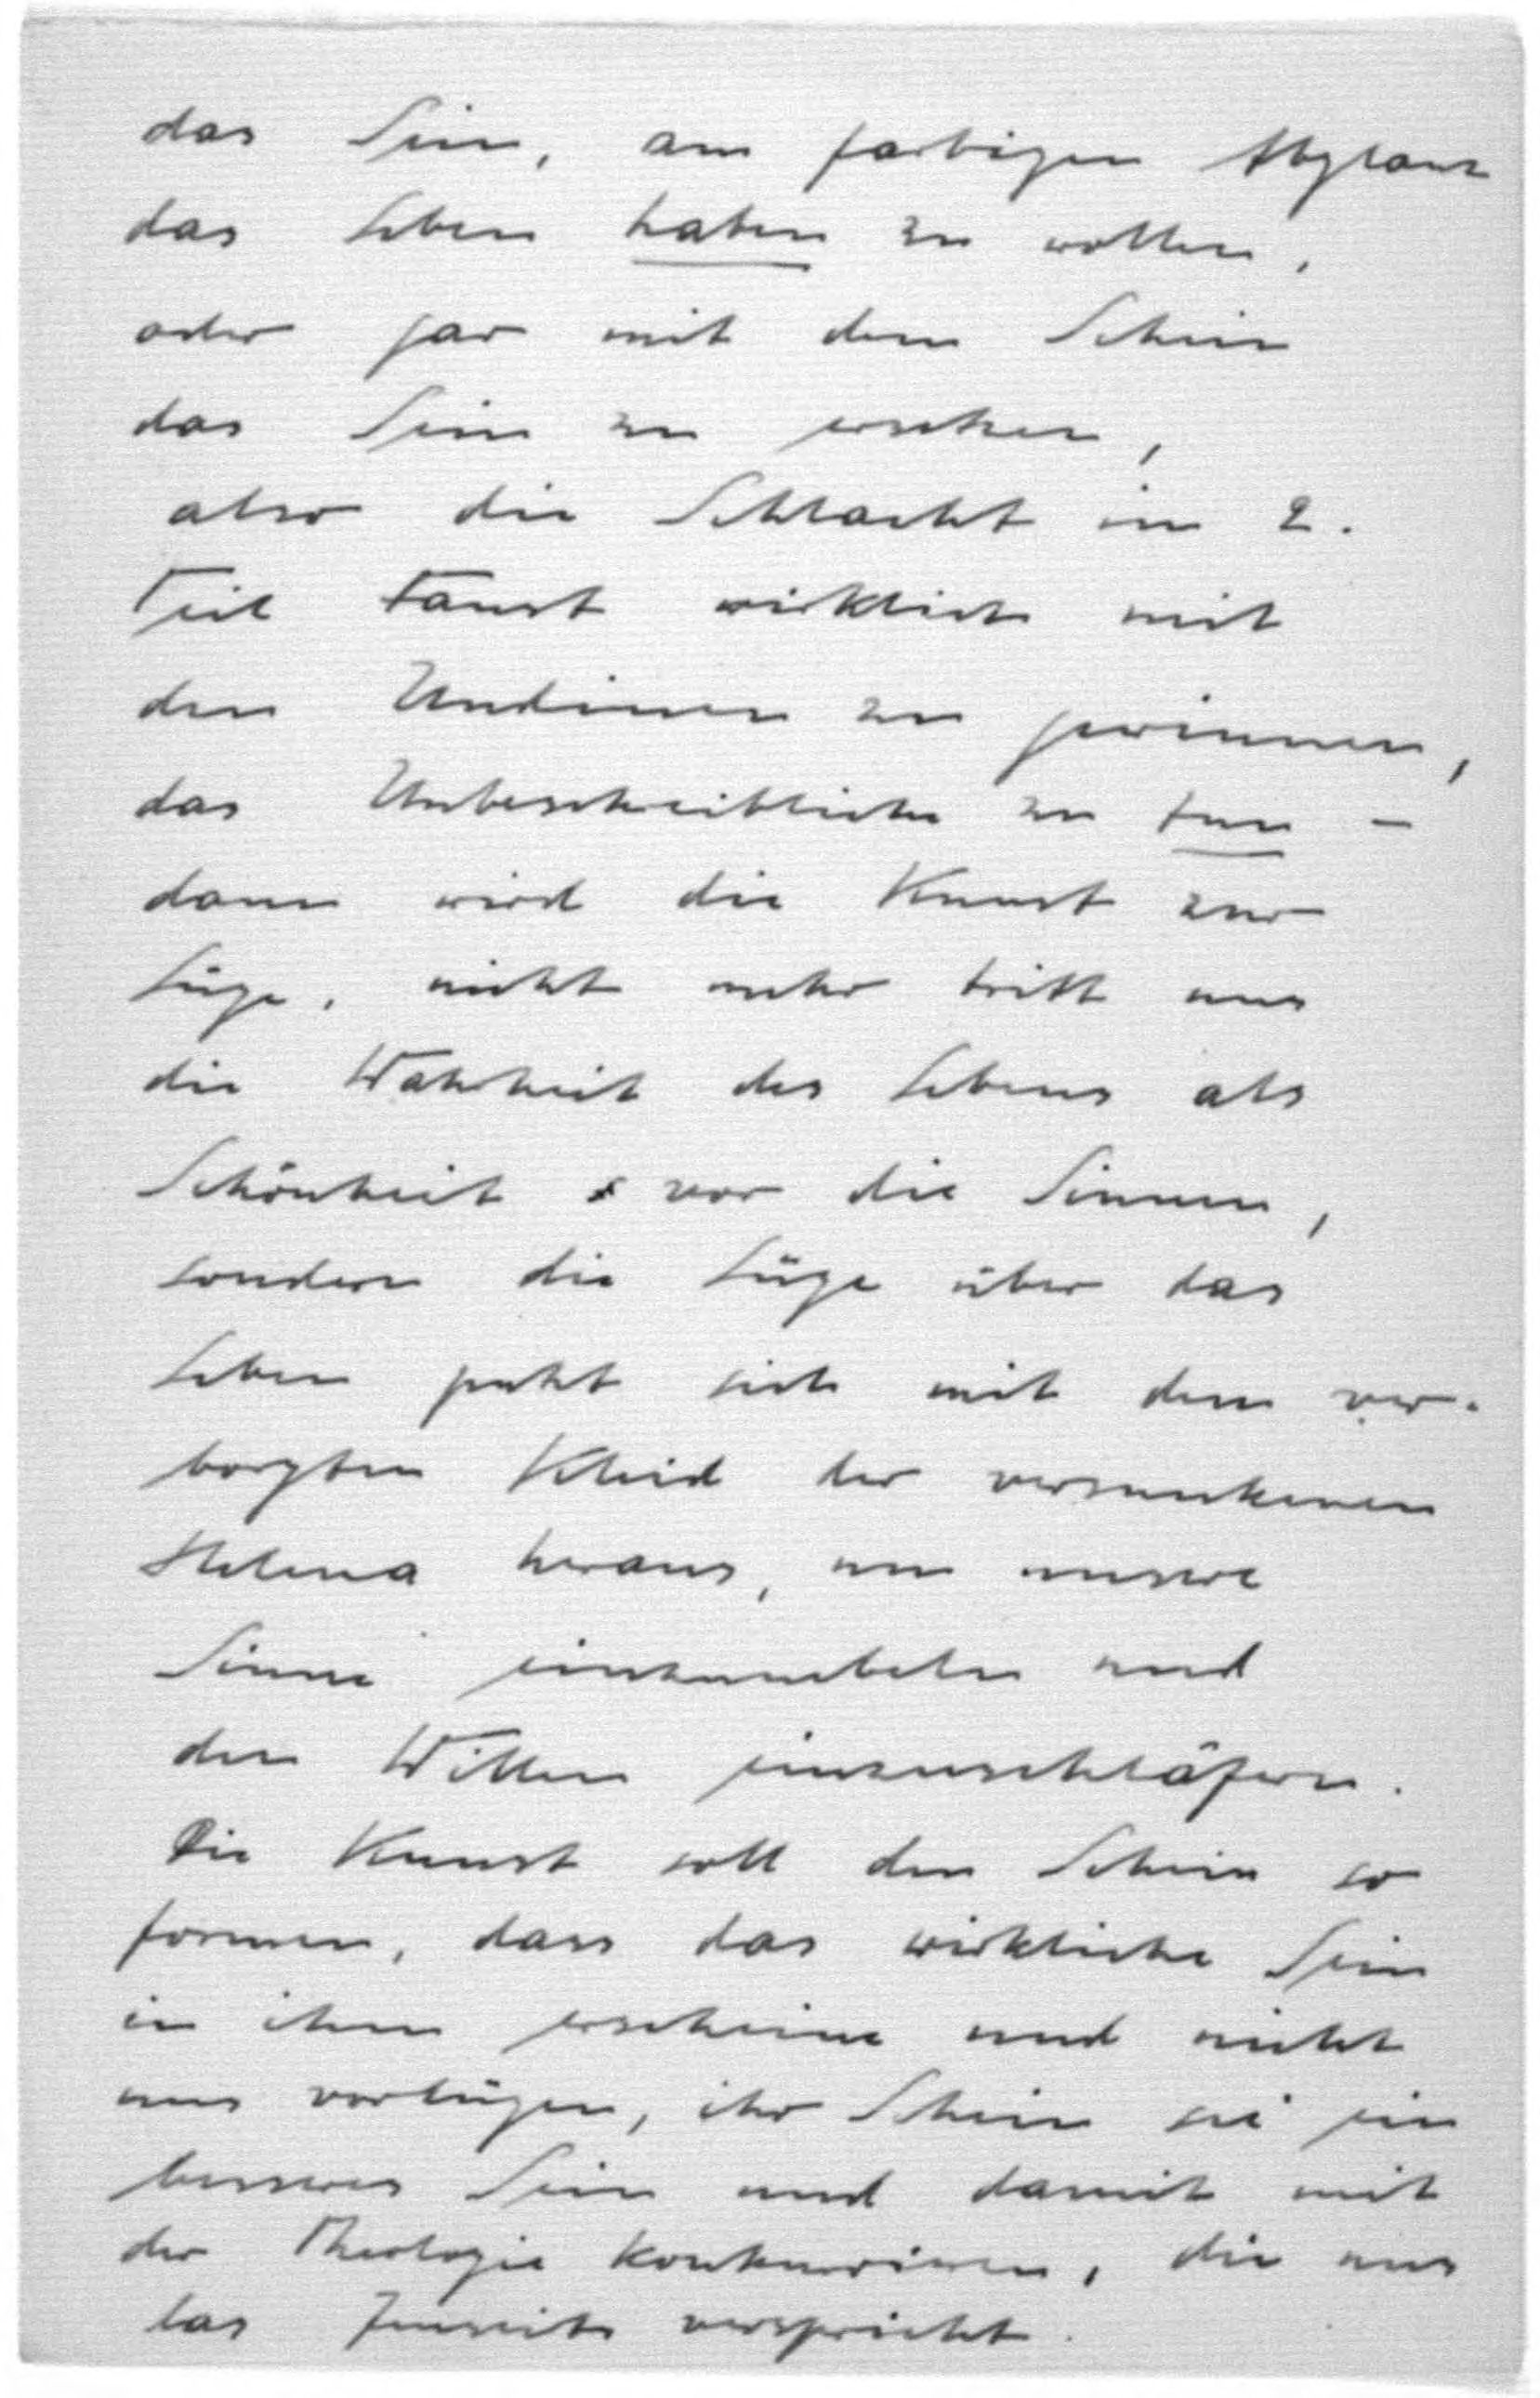 das Sein, am farbigen Abglanz
das Leben haben zu wollen,
oder gar mit dem Schein
das Sein zu ersetzen,
also die Schlacht im 2.
Teil Faust wirklich mit
den Undinen zu gewinnen,
das Unbeschreibliche zu tun -
dann wird die Kunst zur
Lüge, nicht mehr tritt uns
die Wahrheit des Lebens als
Schönheit vor die Sinnen,
sondern die Lüge über das
Leben putzt sich mit dem ver-
borgten Kleid der versunkenen
Helena heraus, um unsere
Sinne einzunebeln und
den Willen einzuschläfern.
Die Kunst soll den Schein so
formen, dass das wirkliche Sein
in ihm erscheine und nicht
uns vorlügen, ihr Schein sei ein
besseres Sein und damit mit
der Theologie konkurrieren, die uns
das Jenseits verspricht.